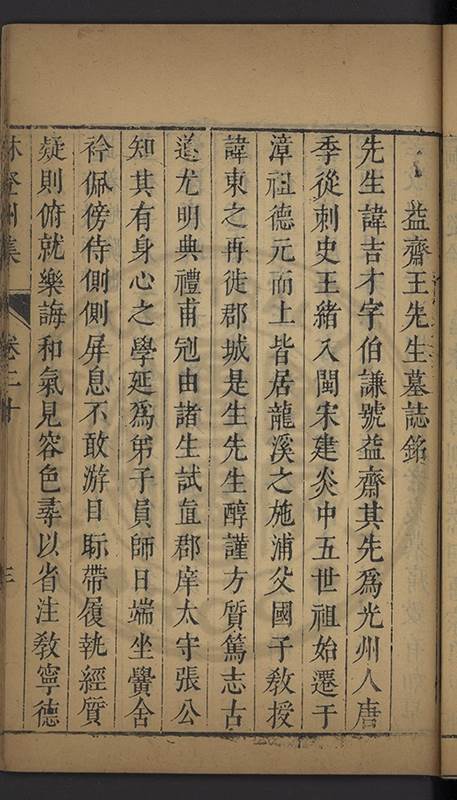 益齋王先生墓誌銘
先生諱吉才字伯謙號益齋其先爲光州人唐
季從刺史王緒入閩宋建炎中五世祖始遷于
漳祖德元而上皆居龍溪之施浦父國子教授
諱東之再徙郡城是生先生醇謹方質篤志古
道尤明典禮甫冠由諸生試直郡庠太守張公
知其有身心之學延爲弟子員師日端坐黌舍
衿佩傍侍側側屏息不敢游目眎帶履執經質
疑則俯就樂誨和氣見容色尋以省注教寧德
林登州集 卷二十 三